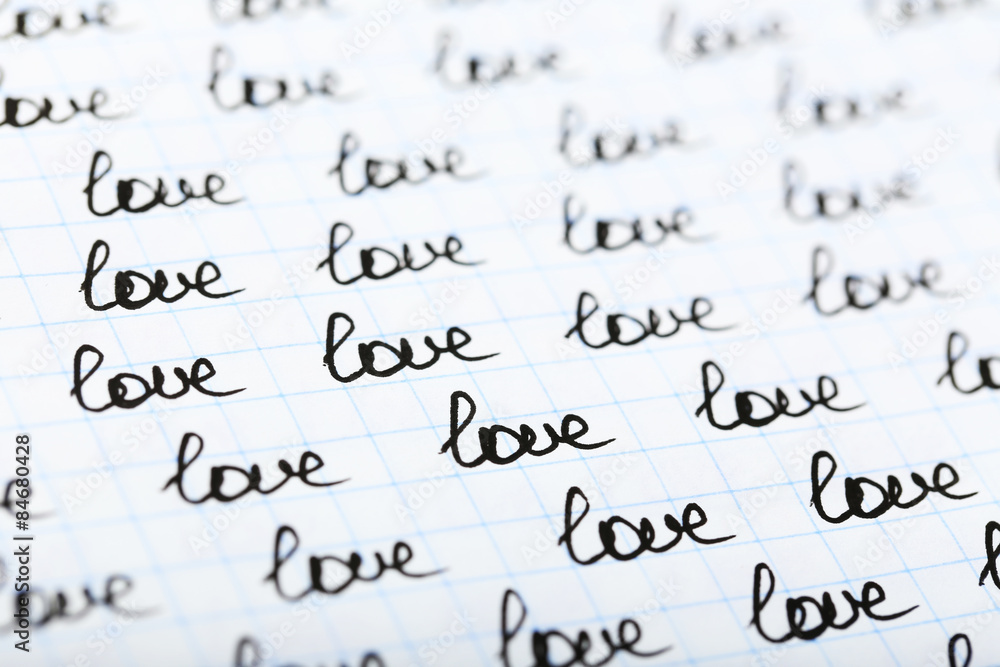 love love
love love love love love
love love love love
love love love love
love love love love
love love love lo
ove love love love
love love love